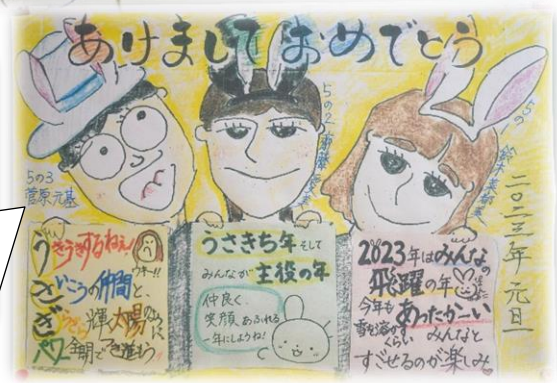 あけまして おめでとう
5の3
菅原元基
5の2
5の1
鈴木
二〇二三年 元旦
うきうきするねぇ!
ウキー!!
さいこうの仲間と、
ぎらぎら輝く太陽のように
パワー全開で
うさきち年 そして
みんなが 主役の年
仲良く、
笑顔あふれる
一年にしようね!
2023年はみんなの
飛躍の年
今年も
雪を溶かすくらい
あったかーい
みんなと
すごせるのが楽しみ